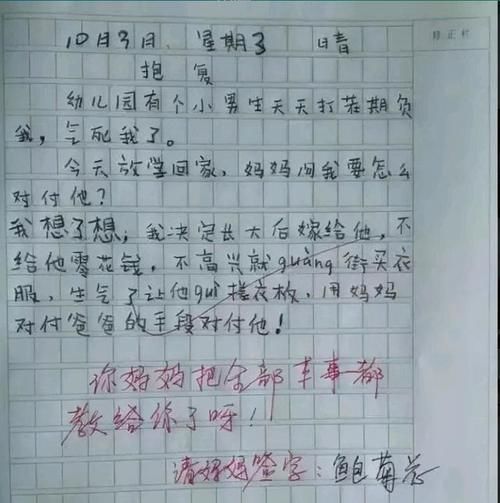 10月3日 星期3 晴
抱复
幼儿园有个小男生天天打我期负
我，气死我了。
今天放学回家，妈妈问我要怎么
对付他？
我想了想，我决定长大后嫁给他，不
给他零花钱，不高兴就guàng街买衣
服，生气了让他guì搓衣板，用妈妈
对付爸爸的手段对付他！
你妈妈把全部本事都
教给你了呀！
请妈妈签字：鲍菊芯
修正栏